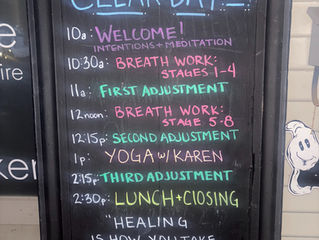 CLEAR DAY
10a: WELCOME!
INTENTIONS + MEDITATION
10:30a: BREATH WORK:
STAGES 1-4
11a: FIRST ADJUSTMENT
12noon: BREATH WORK:
STAGE 5-8
12:15p: SECOND ADJUSTMENT
1p: YOGA w/ KAREN
2:15p: THIRD ADJUSTMENT
2:30p: LUNCH + CLOSING
"HEALING
IS HOW YOU TAKE
e
ire
ker